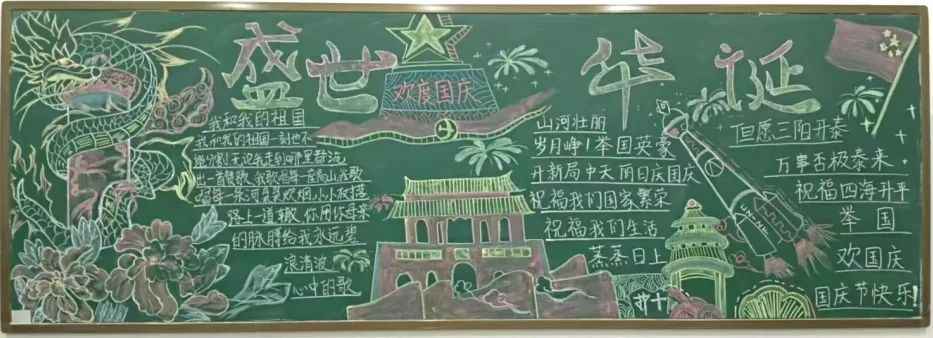 盛世华诞
欢度国庆
我和我的祖国
我和我的祖国一刻也不
能分割无论我走到哪里都流
出一首赞歌我歌唱每一座高山我歌
唱每一条河袅袅炊烟小小村落
路上一道辙你用你母亲
的脉搏给我永远
浪清波
心中的歌
山河壮丽
岁月峥嵘举国英豪
开新局中天丽日庆国庆
祝福我们国家繁荣
祝福我们生活
蒸蒸日上
但愿三阳开泰
万事否极泰来
祝福四海升平
举国
欢国庆
国庆节快乐!